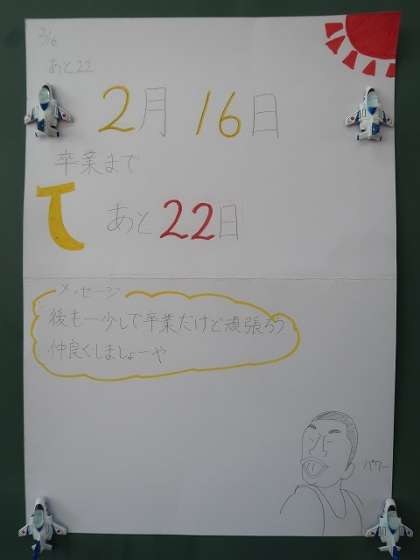 2/6
あと22
2月 16日
卒業まで
あと22日
メッセージ
後も一少しで卒業だけど頑張ろう
仲良くしましょーや
パワー